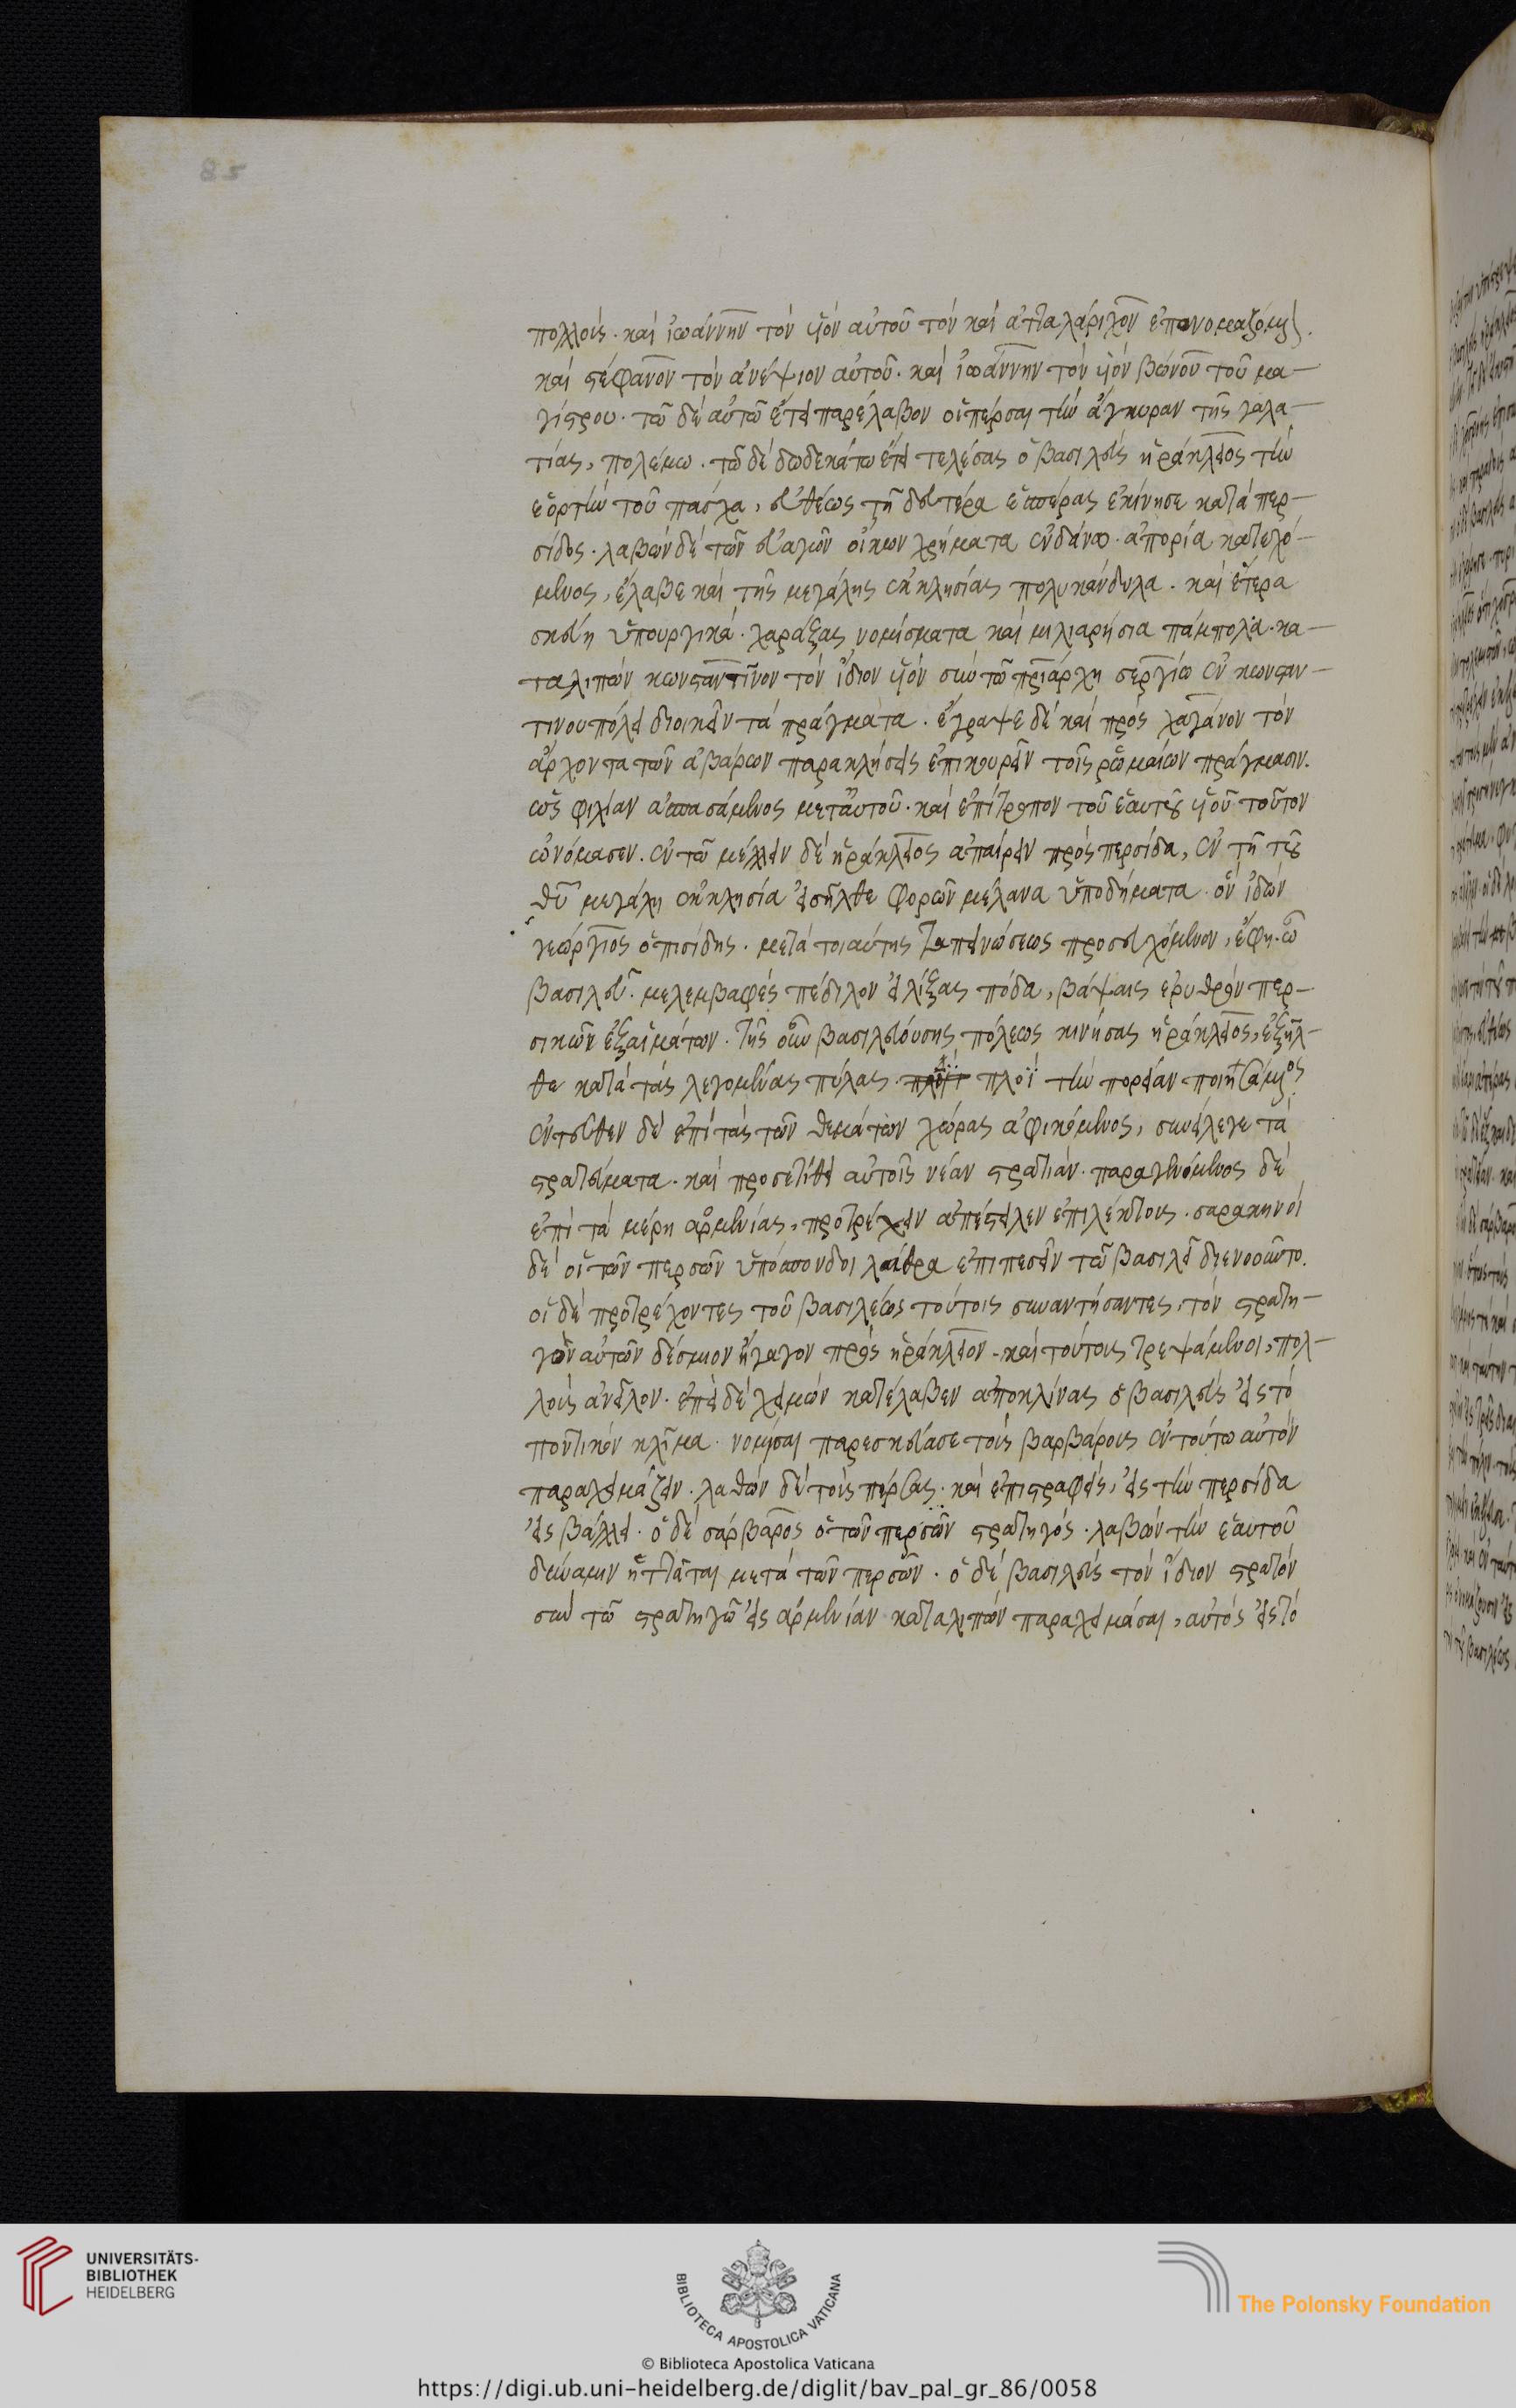 85
πολλούς. καὶ ἰωάννην τὸν υἱὸν αὐτοῦ τὸν καὶ ἀτταλάριχον ἐπονομαζόμενον.
καὶ στέφανον τὸν ἀνέψιον αὐτοῦ. καὶ ἰωάννην τὸν υἱὸν βώνου τοῦ μα-
γίστρου. τῶ δὲ αὐτῶ ἔτει παρέλαβον οἱ πέρσαι τὴν ἄγκυραν τῆς γαλα-
τίας, πολέμω. τῶ δὲ δωδεκάτω ἔτει τελέσας ὁ βασιλεὺς ἡράκλειος τὴν
ἑορτὴν τοῦ πάσχα, εὐθέως τῆ δευτέρα ἑσπέρας ἐκίνησε κατὰ περ-
σίδος. λαβὼν δὲ τῶν εὐαγῶν οἴκων χρήματα ἐν δάνω. ἀπορία κατεχό-
μενος, ἔλαβε καὶ τῆς μεγάλης ἐκκλησίας πολυκάνδυλα. καὶ ἕτερα
σκεύη ὑπουργικά. χαράξας νομίσματα καὶ μιλιαρήσια πάμπολα. κα-
ταλιπὼν κωνσταντῖνον τὸν ἴδιον υἱὸν σὺν τῶ πριάρχη σεργίω ἐν κωνσταν-
τινουπόλει διοικεῖν τὰ πράγματα. ἔγραψε δὲ καὶ πρὸς χαγάνον τὸν
ἄρχοντα τῶν ἀβάρων παρακλήσεις ἐπικουρεῖν τοῖς ῥωμαίων πράγμασιν.
ὡς φιλίαν σπασάμενος μετ' αὐτοῦ. καὶ ἐπίτροπον τοῦ ἑαυτοῦ υἱοῦ τοῦτον
ὠνόμασεν. ἐν τῶ μέλλειν δὲ ἡράκλειος ἀπαίρειν πρὸς περσίδα, ἐν τῆ τοῦ
θυ μεγάλη ἐκκλησία εἰσῆλθε φορῶν μέλανα ὑποδήματα. ὃν ἰδὼν
γεώργιος ὁ πισίδης. μετὰ τοιαύτης ταπεινώσεως προσευχόμενον, ἔφη. ὦ
βασιλεῦ. μελεμβαφὲς πέδιλον εἱλίξας πόδα, βάψαις ἐρυθρὸν περ-
σικῶν ἐξ αἱμάτων. τῆς οὖν βασιλευούσης πόλεως κινήσας ἡράκλειος, ἐξῆλ-
θε κατὰ τὰς λεγομένας πύλας. πλοῒ τὴν πορείαν ποιησάμενος
ἐντεῦθεν δὲ ἐπὶ τὰς τῶν θεμάτων χώρας ἀφικόμενος, συνέλεγε τὰ
στρατεύματα. καὶ προσετίθει αὐτοῖς νέαν στρατιάν. παραγενόμενος δὲ
ἐπὶ τὰ μέρη ἀρμενίας, προτρέχειν ἀπέστειλεν ἐπιλέκτους. σαρακηνοὶ
δὲ οἱ τῶν περσῶν ὑπόσπονδοι λάθρα ἐπιπεσεῖν τῶ βασιλεῖ διενοοῦντο.
οἱ δὲ προτρέχοντες τοῦ βασιλέως τούτοις συναντήσαντες, τὸν στρατη-
γὸν αὐτῶν δέσμιον ἤγαγον πρὸς ἡράκλειον. καὶ τούτους τρεψάμενοι, πολ-
λοὺς ἀνεῖλον. ἐπεὶ δὲ χειμὼν κατέλαβεν ἀποκλίνας ὁ βασιλεὺς εἰς τὸ
ποντικὸν κλῖμα. νομίσαι παρεσκεύασε τοὺς βαρβάρους ἐν τούτω αὐτὸν
παραχειμάζειν. λαθὼν δὲ τοὺς πέρσας. καὶ ἐπιστραφεὶς, εἰς τὴν περσίδα
εἰσβάλλει. ὁ δὲ σάρβαρος ὁ τῶν περσῶν στρατηγός. λαβὼν τὴν ἑαυτοῦ
δύναμιν ἡττᾶται μετὰ τῶν περσῶν. ὁ δὲ βασιλεὺς τὸν ἴδιον στρατὸν
σὺν τῶ στρατηγῶ εἰς ἀρμενίαν καταλιπὼν παραχειμάσαι, αὐτὸς εἰς τὸ
UNIVERSITÄTS-
BIBLIOTHEK
HEIDELBERG
BIBLIOTECA APOSTOLICA VATICANA
The Polonsky Foundation
© Biblioteca Apostolica Vaticana
https://digi.ub.uni-heidelberg.de/diglit/bav_pal_gr_86/0058